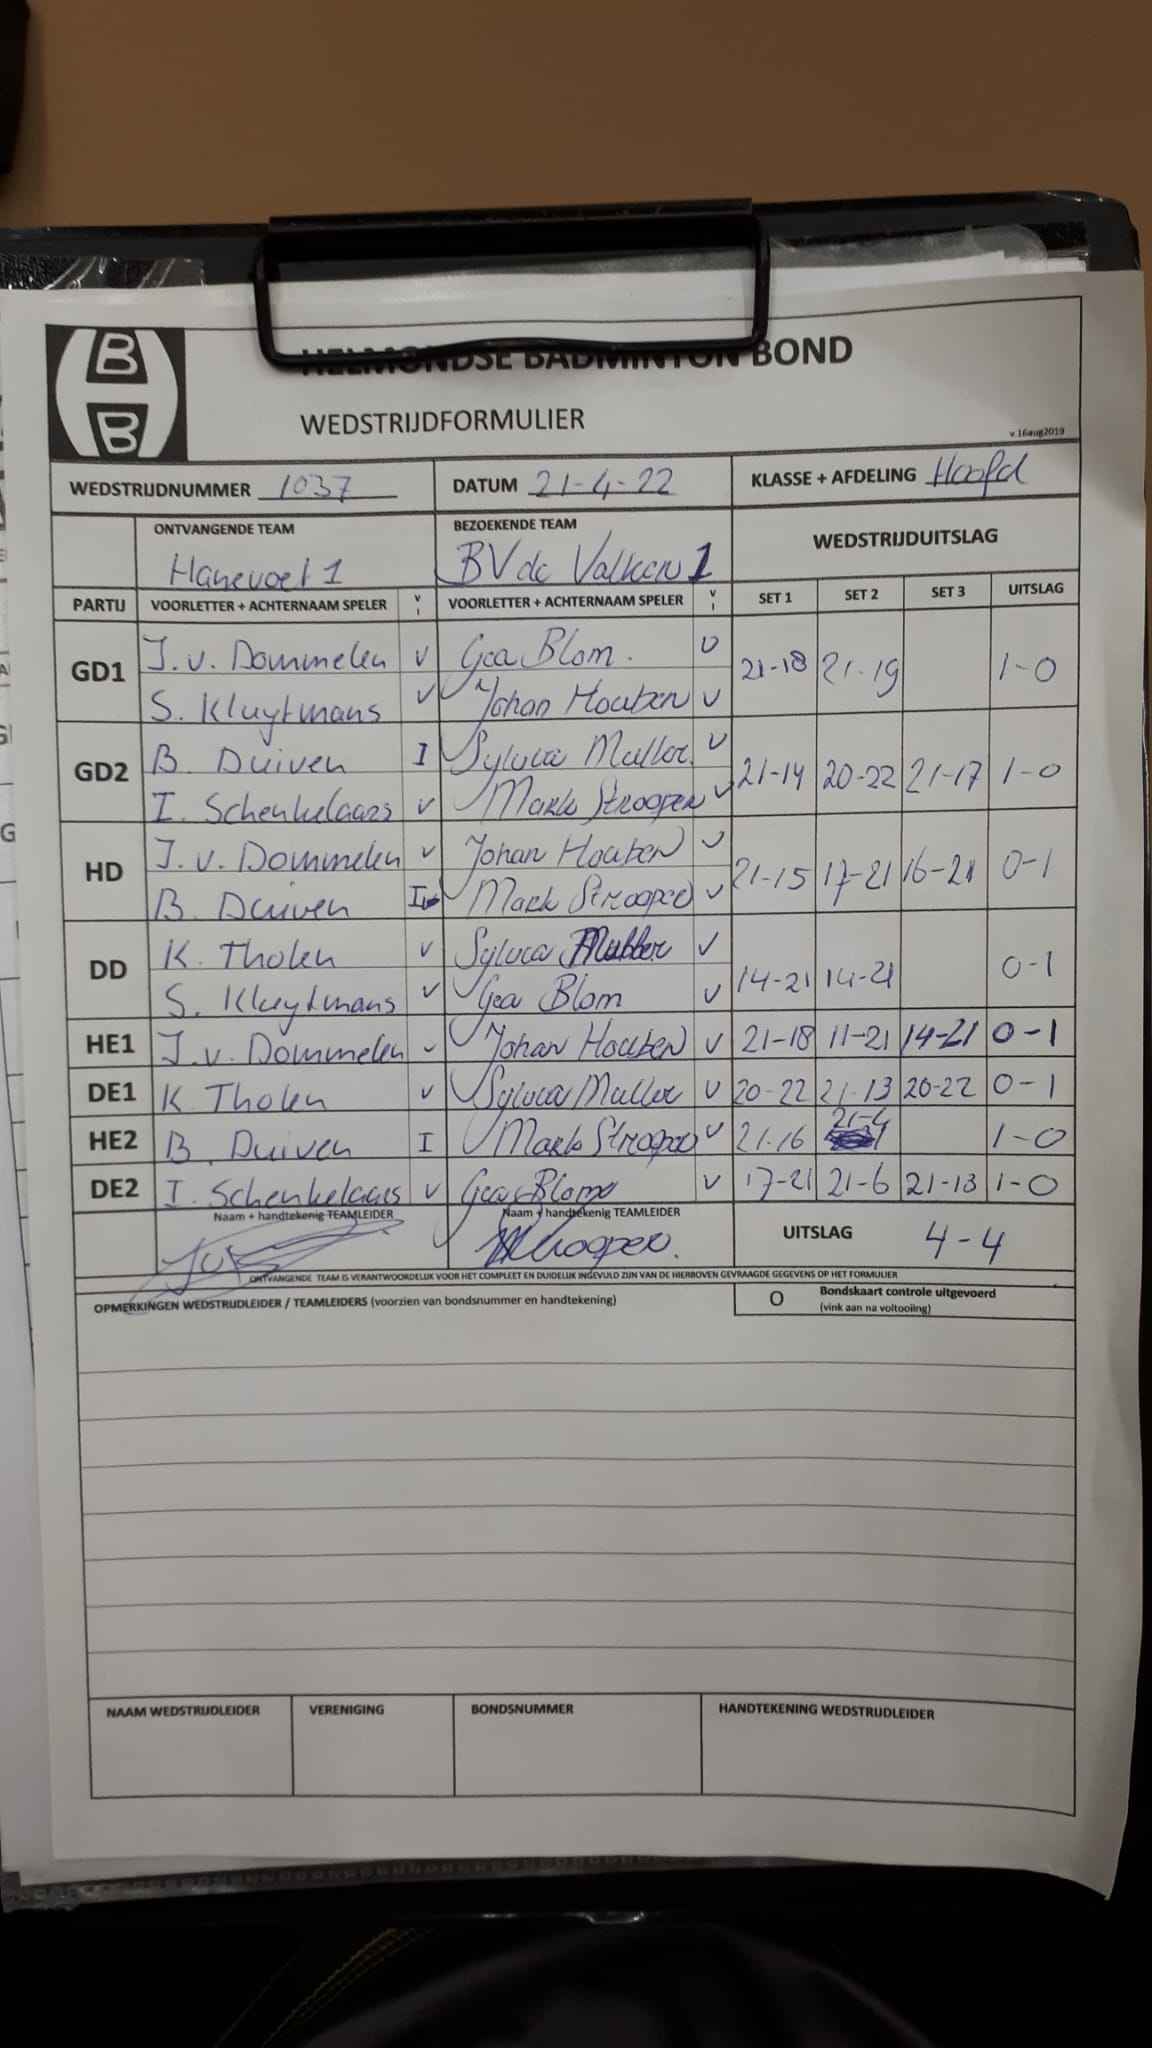 B
B
HELMONDSE BADMINTON BOND
WEDSTRIJDFORMULIER
v.16aug2019
WEDSTRIJDNUMMER 1037 DATUM 21-4-22 KLASSE + AFDELING Hoofd
ONTVANGENDE TEAM BEZOEKENDE TEAM WEDSTRIJDUITSLAG
Hanevoet 1 BV de Valken 1
PARTIJ VOORLETTER + ACHTERNAAM SPELER V I VOORLETTER + ACHTERNAAM SPELER V I SET 1 SET 2 SET 3 UITSLAG
GD1 J. v. Dommelen V Gea Blom. V 21-18 21-19 1-0
S. Kluytmans V Johan Houben V
GD2 B. Duiven I Sylvia Muller V 21-14 20-22 21-17 1-0
I. Schenkelaars V Mark Strooper V
HD J. v. Dommelen V Johan Houben V 21-15 17-21 16-21 0-1
B. Duiven I Mark Strooper V
DD K. Tholen V Sylvia Muller V 14-21 14-21 0-1
S. Kluytmans V Gea Blom V
HE1 J. v. Dommelen V Johan Houben V 21-18 11-21 14-21 0-1
DE1 K Tholen V Sylvia Muller V 20-22 21-13 20-22 0-1
HE2 B. Duiven I Mark Strooper V 21-16 21-4 1-0
DE2 I. Schenkelaars V Gea Blom V 17-21 21-6 21-13 1-0
Naam + handtekenig TEAMLEIDER Naam + handtekenig TEAMLEIDER UITSLAG 4-4
MStrooper.
ONTVANGENDE TEAM IS VERANTWOORDELIJK VOOR HET COMPLEET EN DUIDELIJK INGEVULD ZIJN VAN DE HIERBOVEN GEVRAAGDE GEGEVENS OP HET FORMULIER
OPMERKINGEN WEDSTRIJDLEIDER / TEAMLEIDERS (voorzien van bondsnummer en handtekening) O Bondskaart controle uitgevoerd
(vink aan na voltooiing)
NAAM WEDSTRIJDLEIDER VERENIGING BONDSNUMMER HANDTEKENING WEDSTRIJDLEIDER